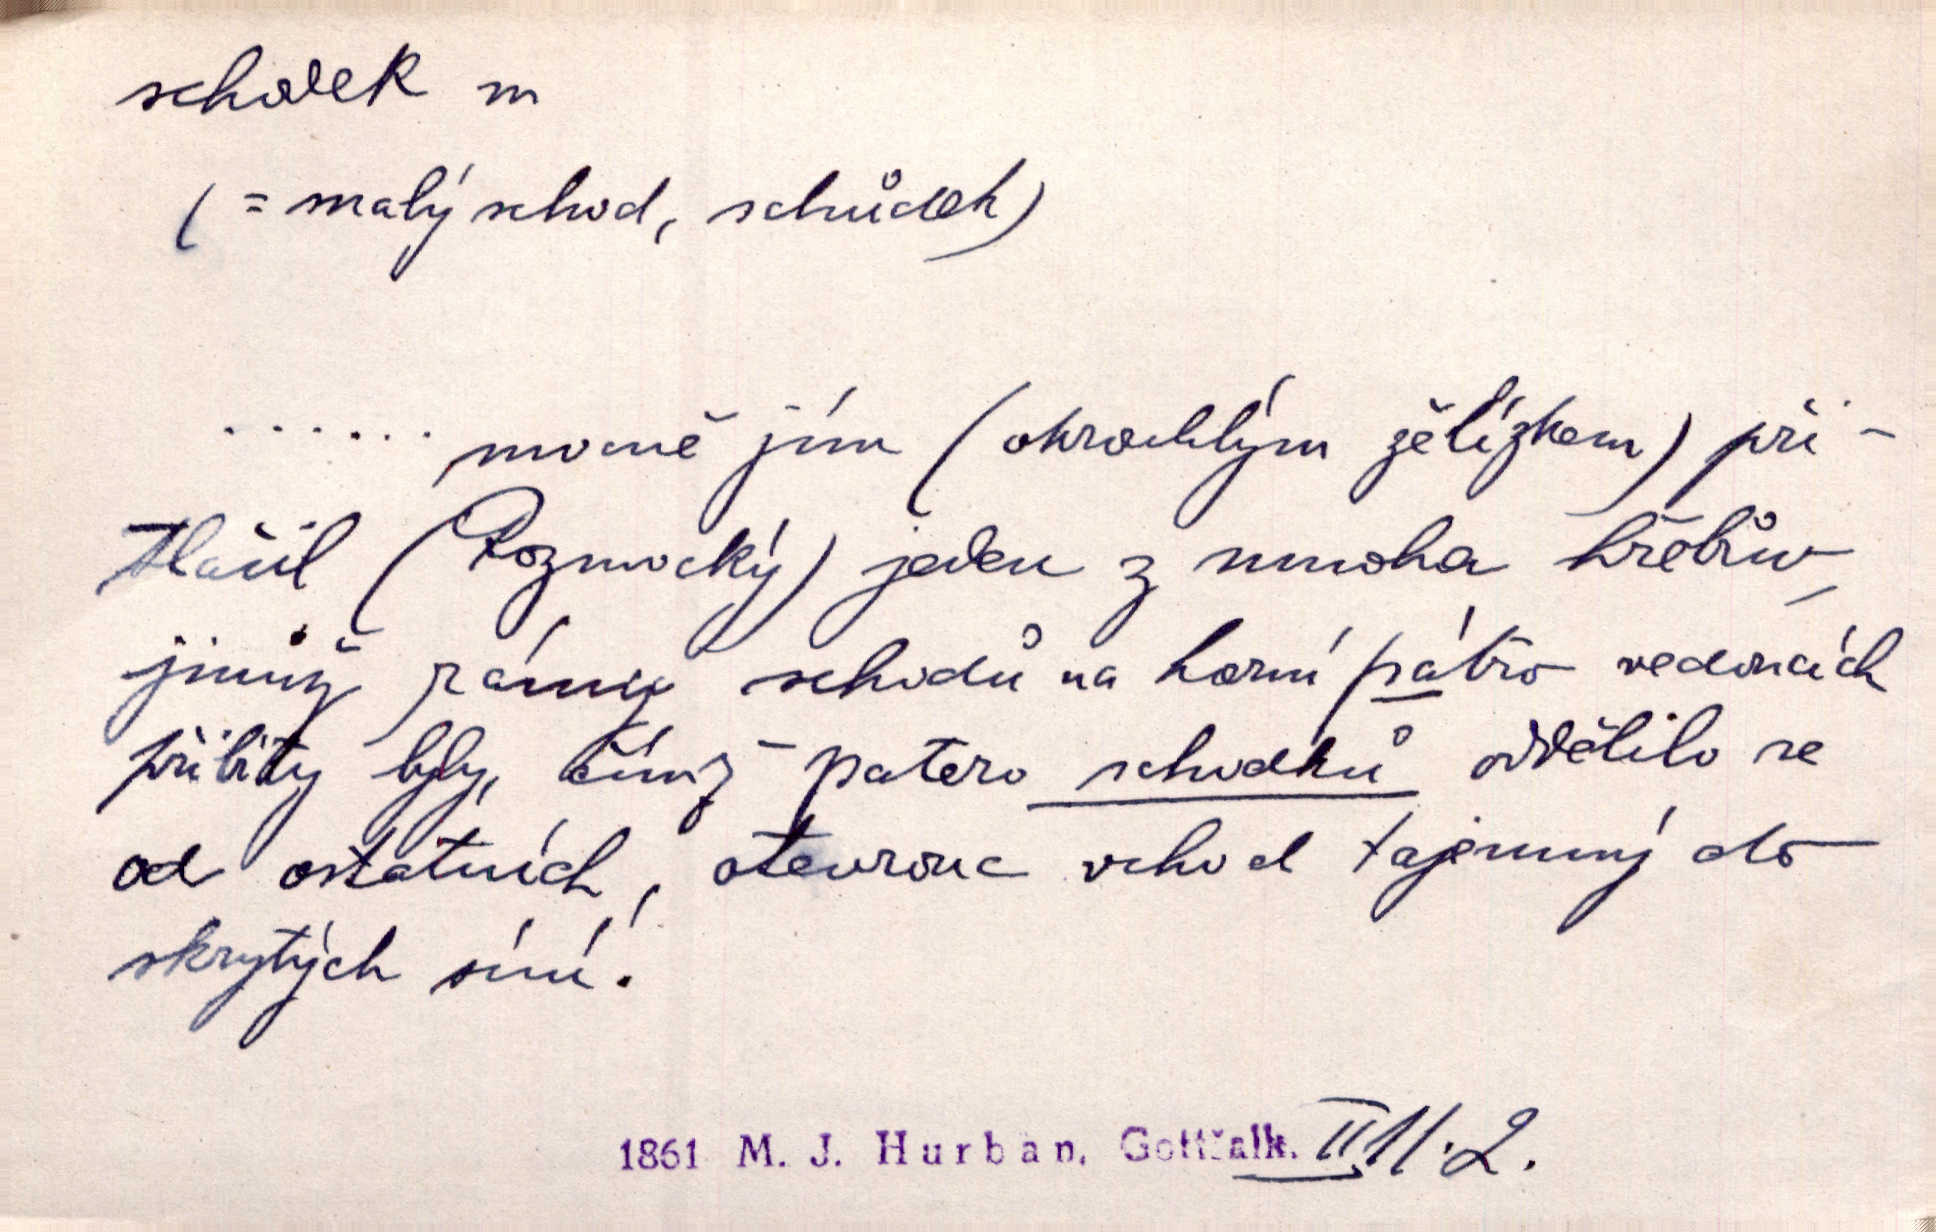 schodek m
( = malý schod, schůdek)
....... mocně jím (okrouhlým želízkem) při-
tlačil (Rozmocký) jeden z mnoha hřebův
jimiž rámy schodů na horní pátro vedoucích
přibity byly, čímž patero schodků oddělilo se
od ostatních, otevrouc vchod tajemný do
skrytých síní.
1861 M. J. Hurban, Gottšalk. II 11. 2.